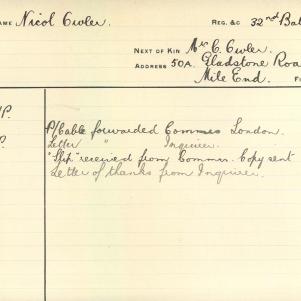 NAME Nicol Cwler REG. &C 32nd Bat
NEXT OF KIN Mr C. Cwler.
ADDRESS 50A. Gladstone Roa
Mile End. F
P.
P/Cable forwarded Commrs London.
Letter " Inquirer.
"Slip" received from Commrs. Copy sent
Letter of thanks from Inquirer.